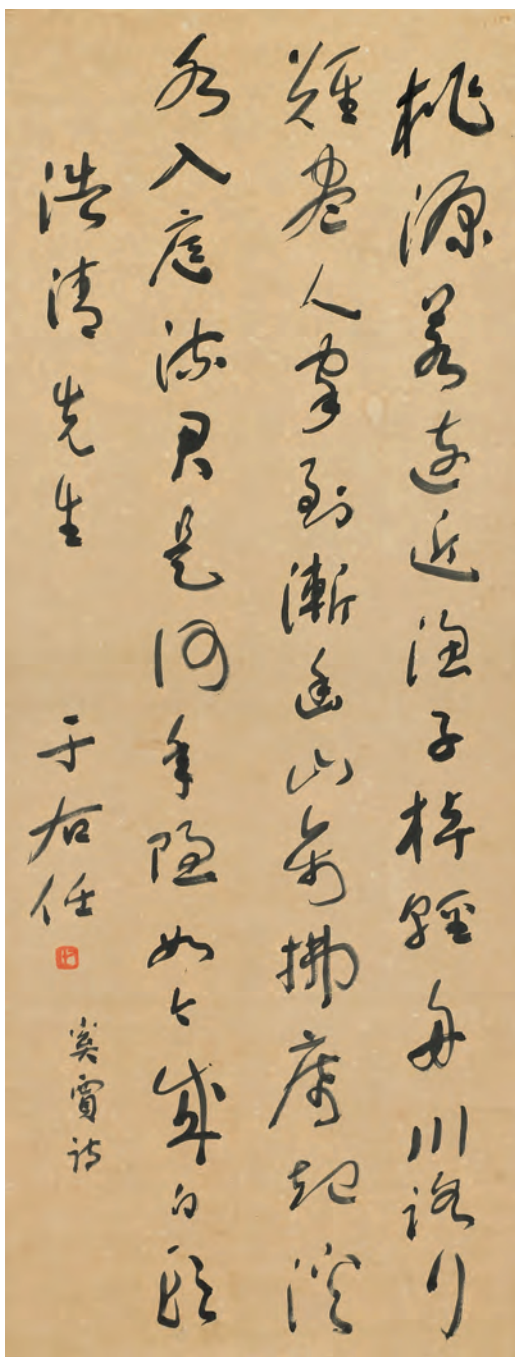 桃源若遠近漁子棹輕舟川路行
難盡人家到漸幽山禽拂席起溪
水入庭流君是何年隱如今成白頭
浩清先生
于右任
奚賈詩